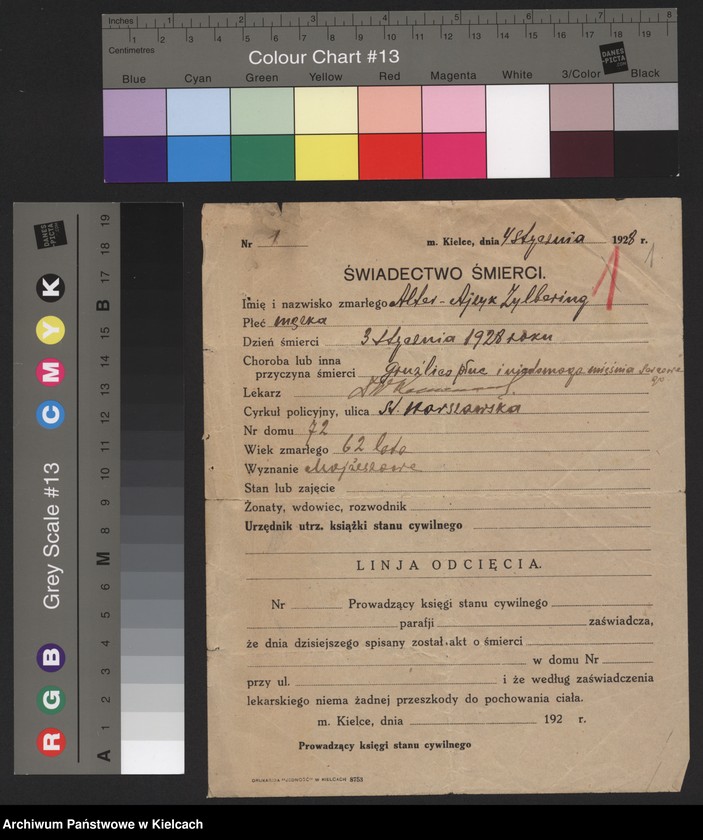 Inches 1 2 3 4 5 6 7 8
Centimetres 1 2 3 4 5 6 7 8 9 10 11 12 13 14 15 16 17 18 19
Colour Chart #13
DANES-PICTA.COM
Blue Cyan Green Yellow Red Magenta White 3/Color Black
DANES-PICTA.COM
Grey Scale #13
R G B C M Y K
A 1 2 3 4 5 6 M 8 9 10 11 12 13 14 15 B 17 18 19
Nr 1 m. Kielce, dnia 4 Stycznia 1928 r.
ŚWIADECTWO ŚMIERCI.
Imię i nazwisko zmarłego Alter-Ajzyk Zylbering
Płeć męska
Dzień śmierci 3 Stycznia 1928 roku
Choroba lub inna
przyczyna śmierci gruźlica płuc i niedomoga mięśnia
Lekarz
Cyrkuł policyjny, ulica St. Warszawska
Nr domu 72
Wiek zmarłego 62 lata
Wyznanie Mojżeszowe
Stan lub zajęcie
Żonaty, wdowiec, rozwodnik
Urzędnik utrz. książki stanu cywilnego
LINJA ODCIĘCIA.
Nr Prowadzący księgi stanu cywilnego
parafji zaświadcza,
że dnia dzisiejszego spisany został akt o śmierci
w domu Nr
przy ul. i że według zaświadczenia
lekarskiego niema żadnej przeszkody do pochowania ciała.
m. Kielce, dnia 192 r.
Prowadzący księgi stanu cywilnego
W KIELCACH 8753
Archiwum Państwowe w Kielcach